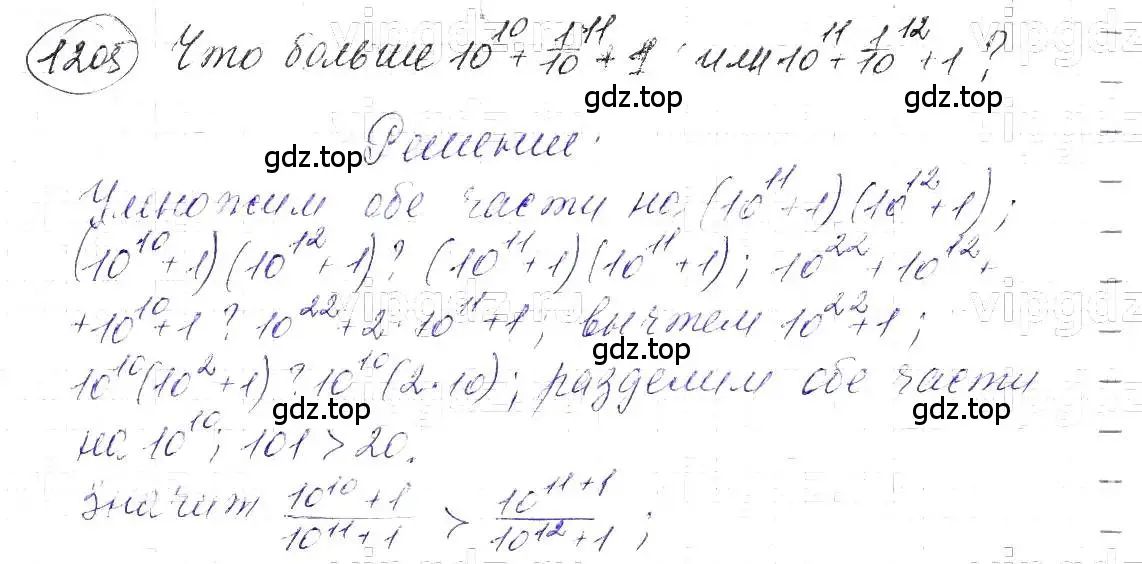 1205 Что больше 10^10 + 1/10^11 + 1 или 10^11 + 1/10^12 + 1?
gdz.top gdz.top
Решение.
gdz.top
Умножим обе части на (10^11+1)(10^12+1);
(10^10+1)(10^12+1)? (10^11+1)(10^11+1); 10^22+10^12+
vipgdz.ru vipgdz
+10^10+1? 10^22+2·10^11+1; вычтем 10^22+1;
gdz.top
10^10(10^2+1)? 10^10(2·10); разделим обе части
gdz.top gdz.top
на 10^10; 101>20.
Значит (10^10+1)/(10^11+1) > (10^11+1)/(10^12+1);